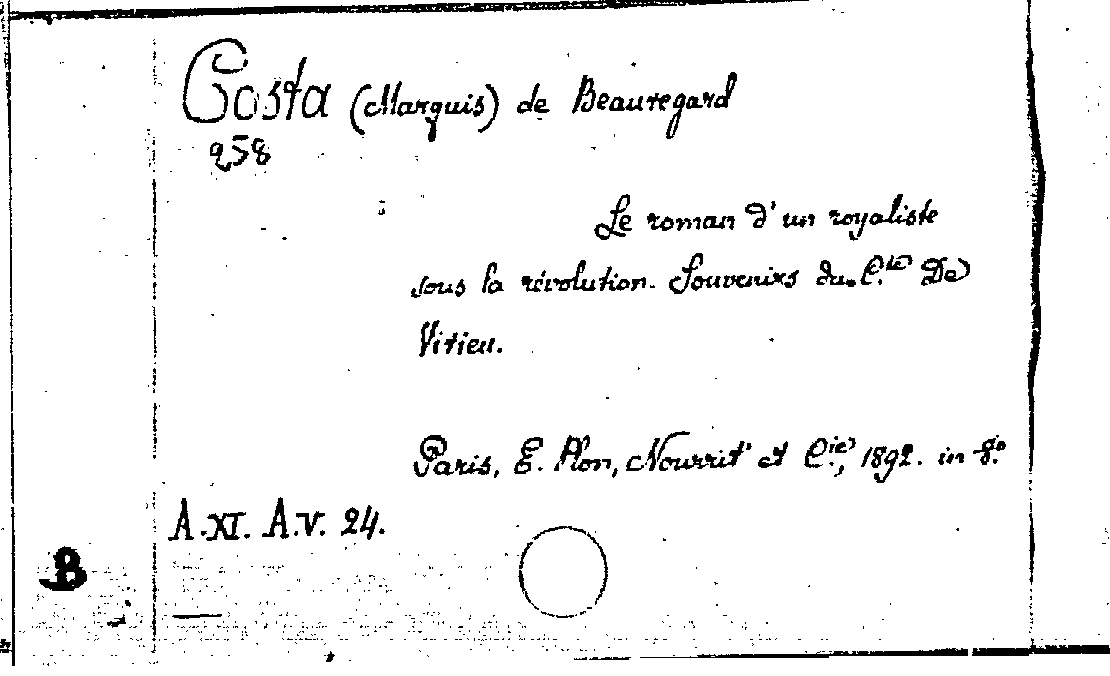 Costa (Marquis) de Beauregard
258
Le roman d'un royaliste
sous la révolution. Souvenirs du C.te De
Virieu.
Paris, E. Plon, Nourrit et C.ie, 1892. in 8.o
A.XI. A.V. 24.
B